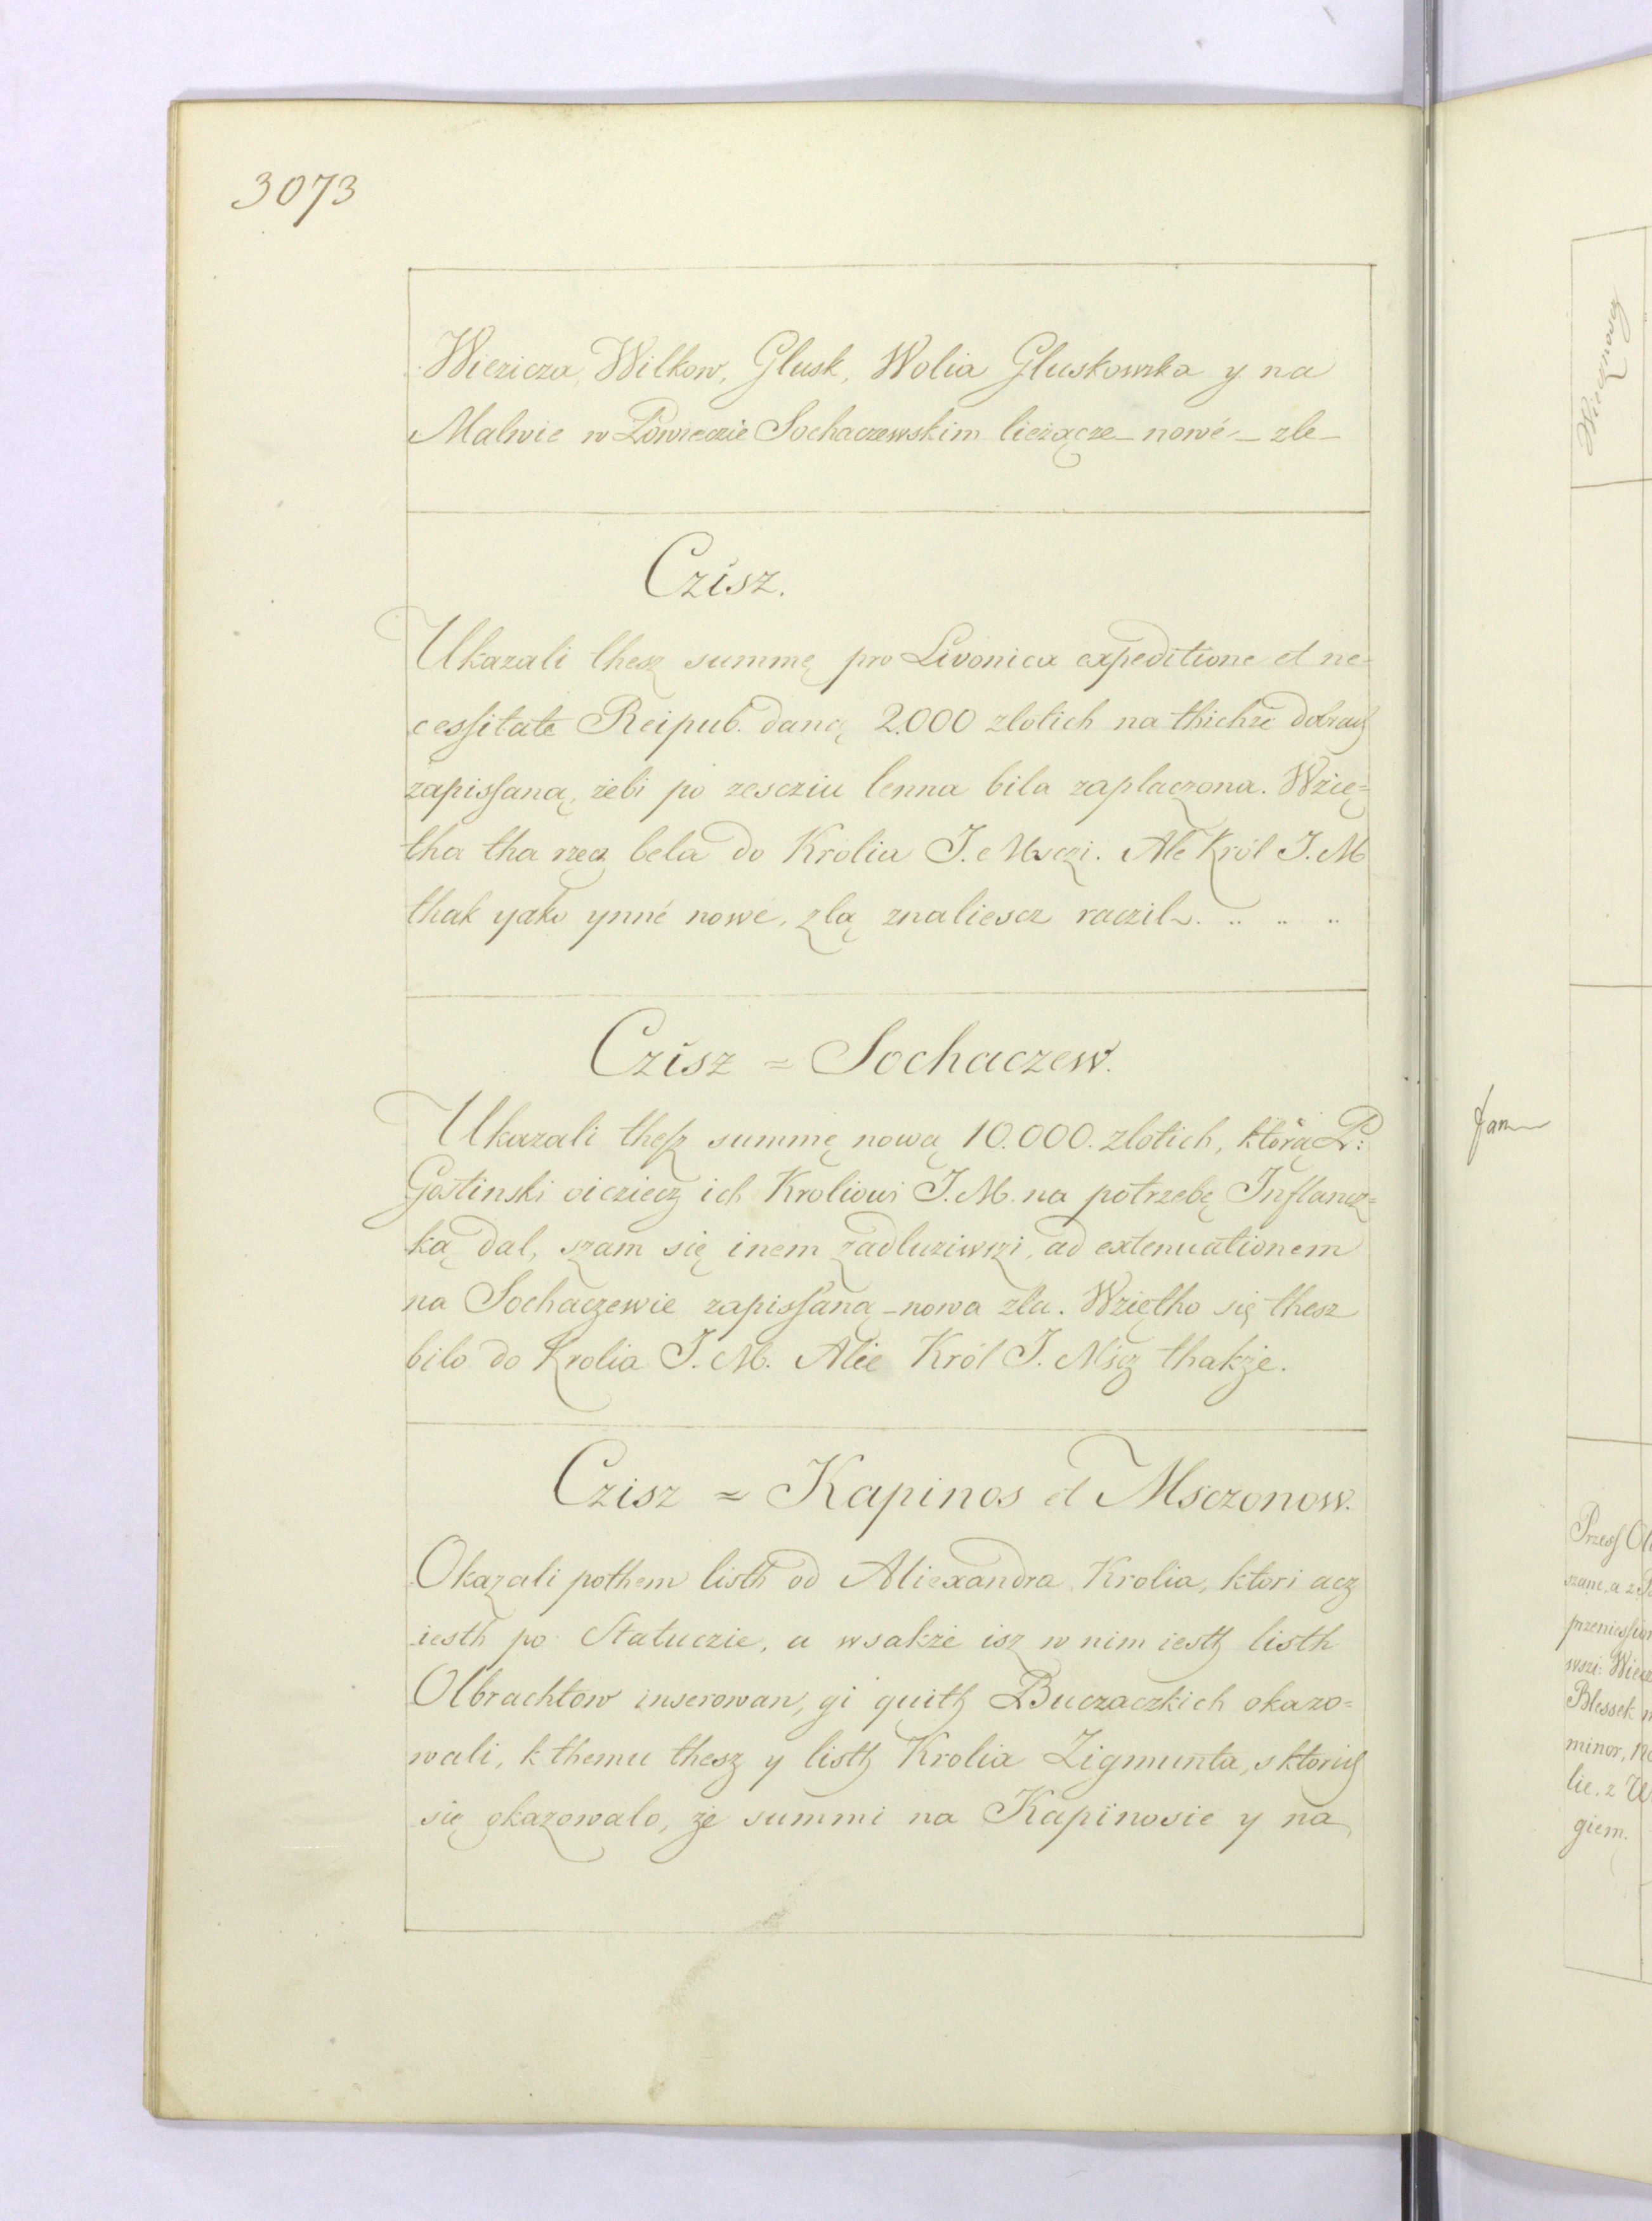 3073
Wiezicza, Wilkow, Glusk, Wolia Gluskowska y na
Malwie w Powieczie Sochaczewskim lieżącze_nowé_zle_
Czisz.
Ukazali thesz summę pro Livonica expeditione et ne=
cessitate Reipub. daną 2.000 zlotich na thichże dobrach
zapissaną, żebi po zescziu lenna bila zaplaczona. Wzię=
tha tha rzecz bela do Krolia J. Msczi. Ale Król J. M
thak yako ynné nowé, zlą znaliescz raczil. .. .. ..
Czisz = Sochaczew.
Ukazali thesz summę nową 10.000. zlotich, którą P:
Gostinski oicziecz ich Kroliowi J. M. na potrzebę Inflancz=
ką dal, szam się inem zadluziwszi, ad extenuationem
na Sochaczewie zapissaną_nowa zla. Wziętho się thesz
bilo do Krolia J. M. Alie Król J. Mścz thakże.
Czisz = Kapinos et Msczonow.
Okazali pothem listh od Aliexandra Krolia, ktori acz
iesth po Statuczie, a wsakże isz w nim iesth listh
Olbrachtow inserowan, gi quith Buczaczkich okazo=
wali, k themu thesz y listh Krolia Zigmunta, s ktorich
się okazowalo, że summi na Kapinosie y na
fam
Przess
szane, a z
przeniessio
wszi: Wie
Blessek
minor,
lie, z
giem.